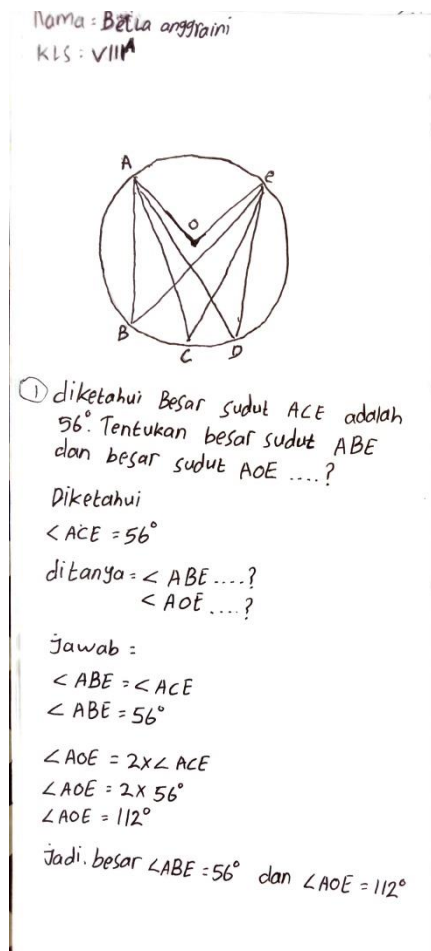 Nama : Betia anggraini
KLS : VIIIA
A
e
O
B
C
D
① diketahui Besar sudut ACE adalah
56°. Tentukan besar sudut ABE
dan besar sudut AOE ....?
Diketahui
∠ACE = 56°
ditanya = ∠ ABE ....?
∠ AOE ....?
Jawab :
∠ ABE = ∠ ACE
∠ ABE = 56°
∠AOE = 2x∠ ACE
∠AOE = 2x 56°
∠AOE = 112°
Jadi. besar ∠ABE = 56° dan ∠AOE = 112°